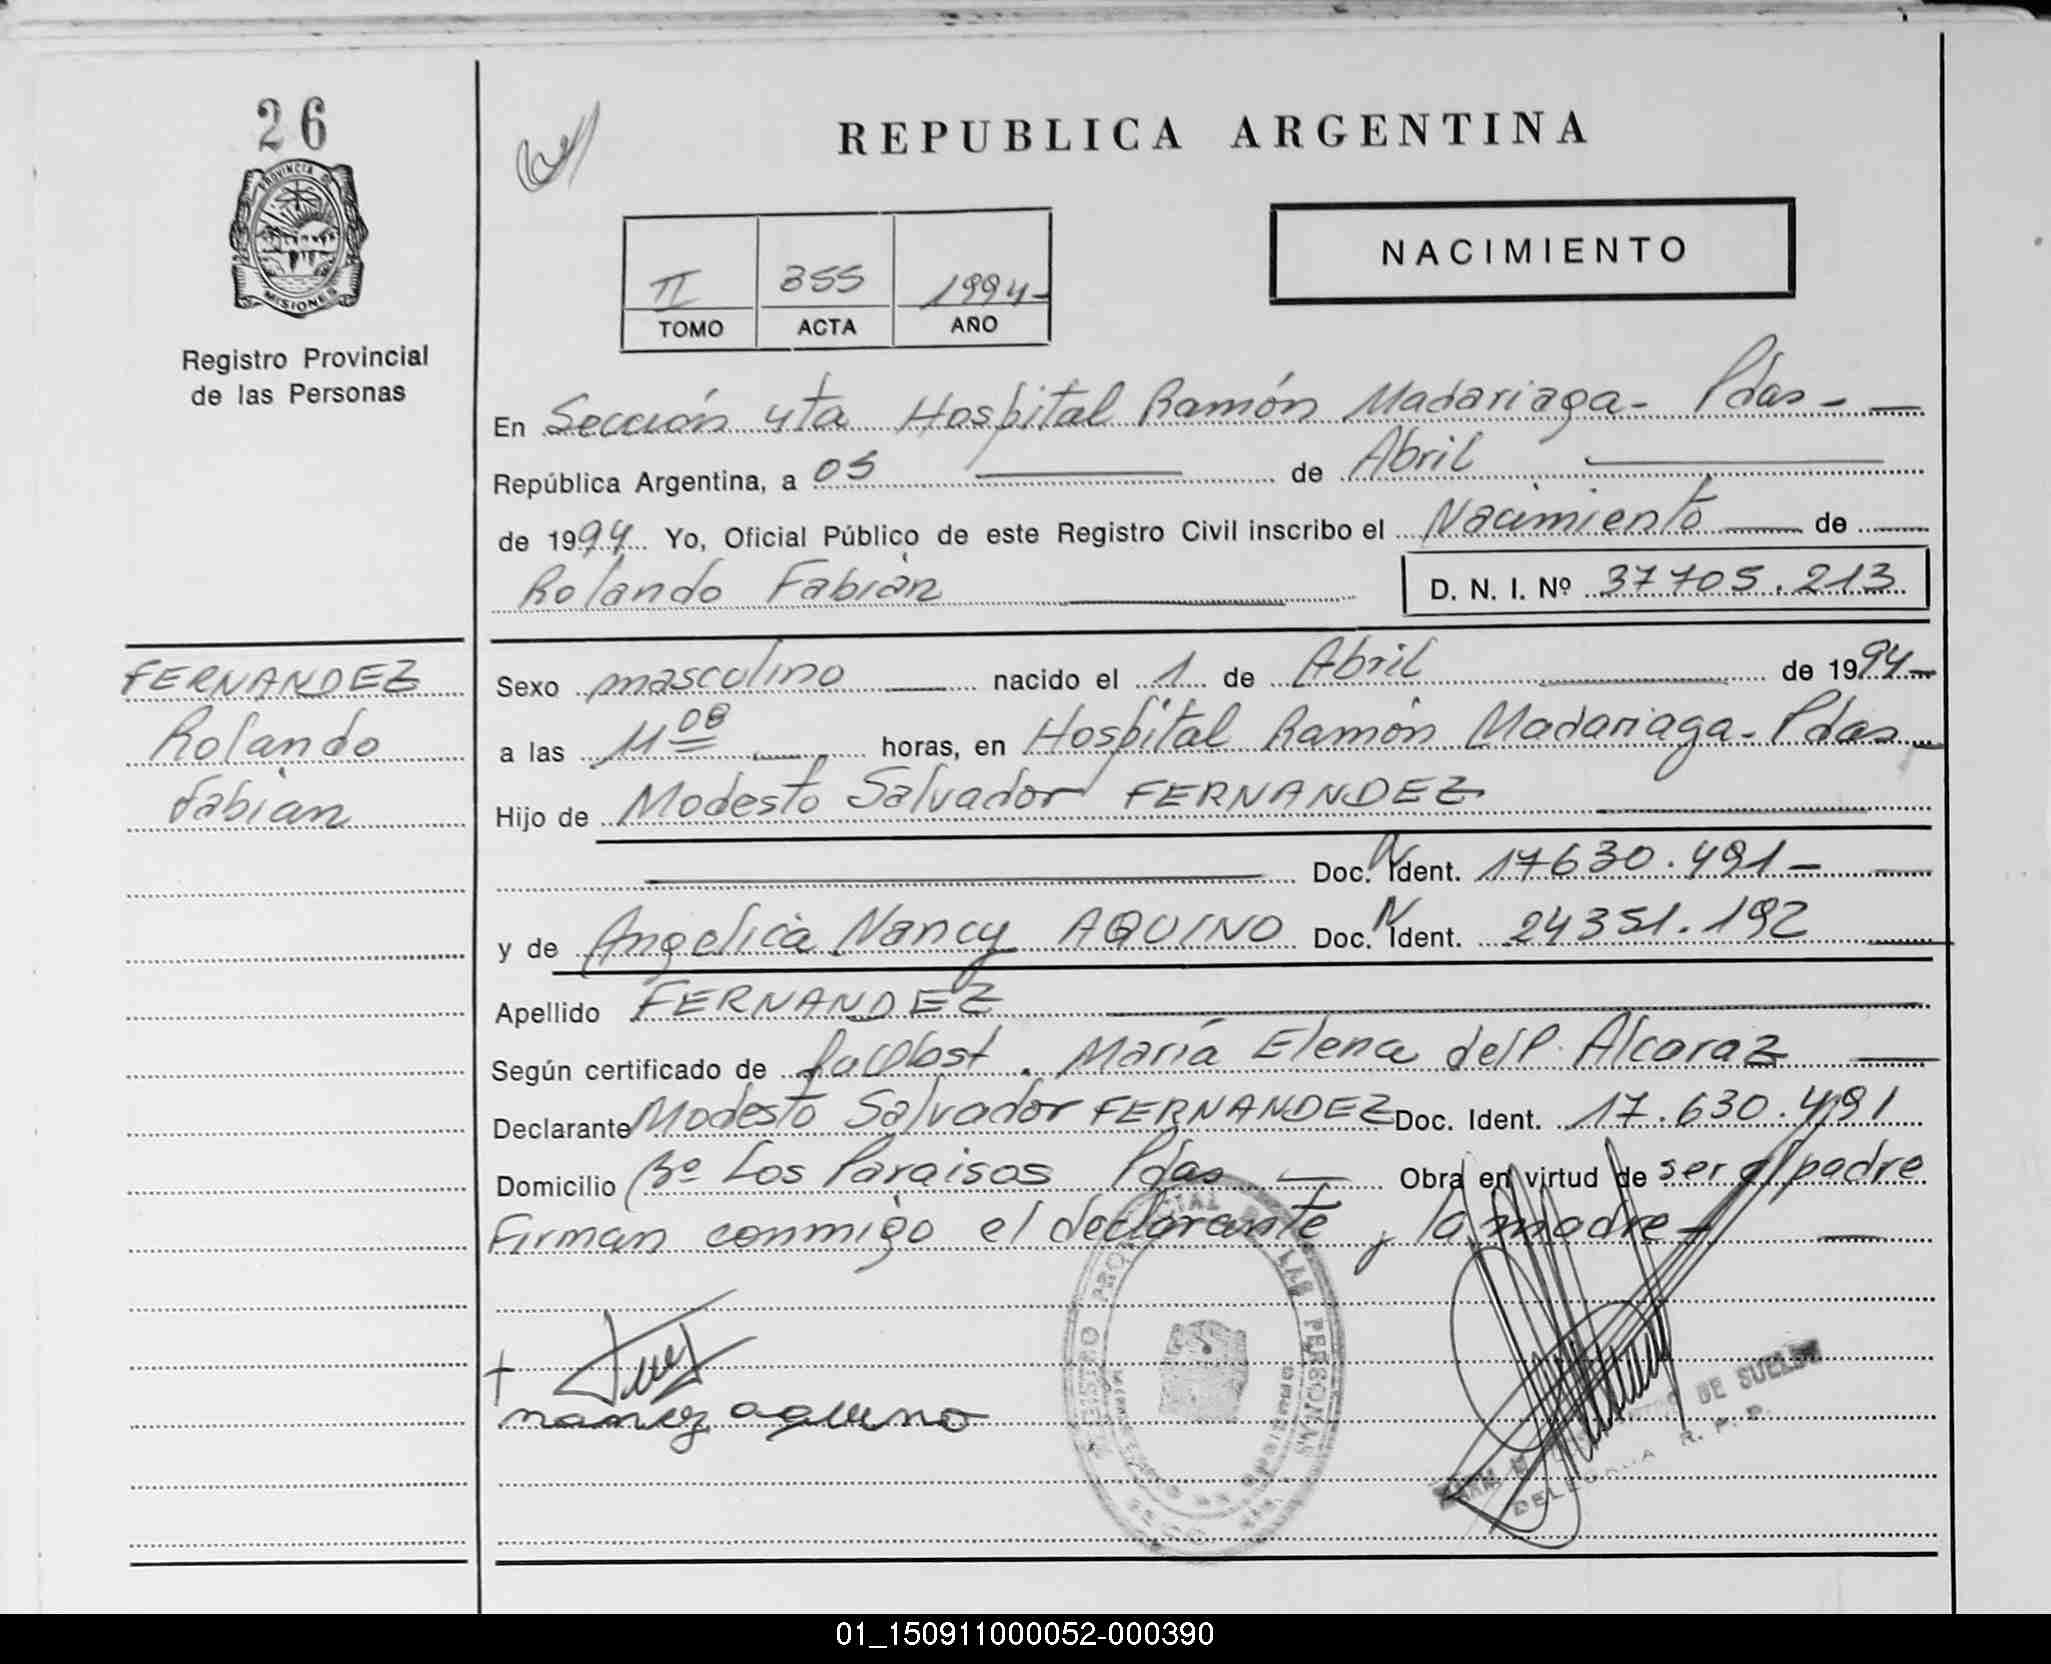 26
PROVINCIA DE
MISIONES
Registro Provincial
de las Personas
REPUBLICA ARGENTINA
NACIMIENTO
II 355 1994-
TOMO ACTA AÑO
En Sección 4ta Hospital Ramón Madariaga- Pdas-
República Argentina, a 05 de Abril
de 1994 Yo, Oficial Público de este Registro Civil inscribo el Nacimiento de
Rolando Fabián D. N. I. Nº 37705.213
FERNANDEZ
Rolando
Fabian
Sexo masculino nacido el 1 de Abril de 1994-
a las 11 08 horas, en Hospital Ramón Madariaga- Pdas
Hijo de Modesto Salvador FERNANDEZ
Doc. N Ident. 17630.491-
y de Angelica Nancy AQUINO Doc. N Ident. 24351.192
Apellido FERNANDEZ
Según certificado de María Elena del P. Alcaraz
Declarante Modesto Salvador FERNANDEZ Doc. Ident. 17.630.491
Domicilio Bº Los Paraisos Pdas Obra en virtud de ser el padre
Firman conmigo el declarante y la madre-
nancy aquino
DE LAS PERSONAS
DE SUELDO
DELEGADA R. P. P.
01_150911000052-000390